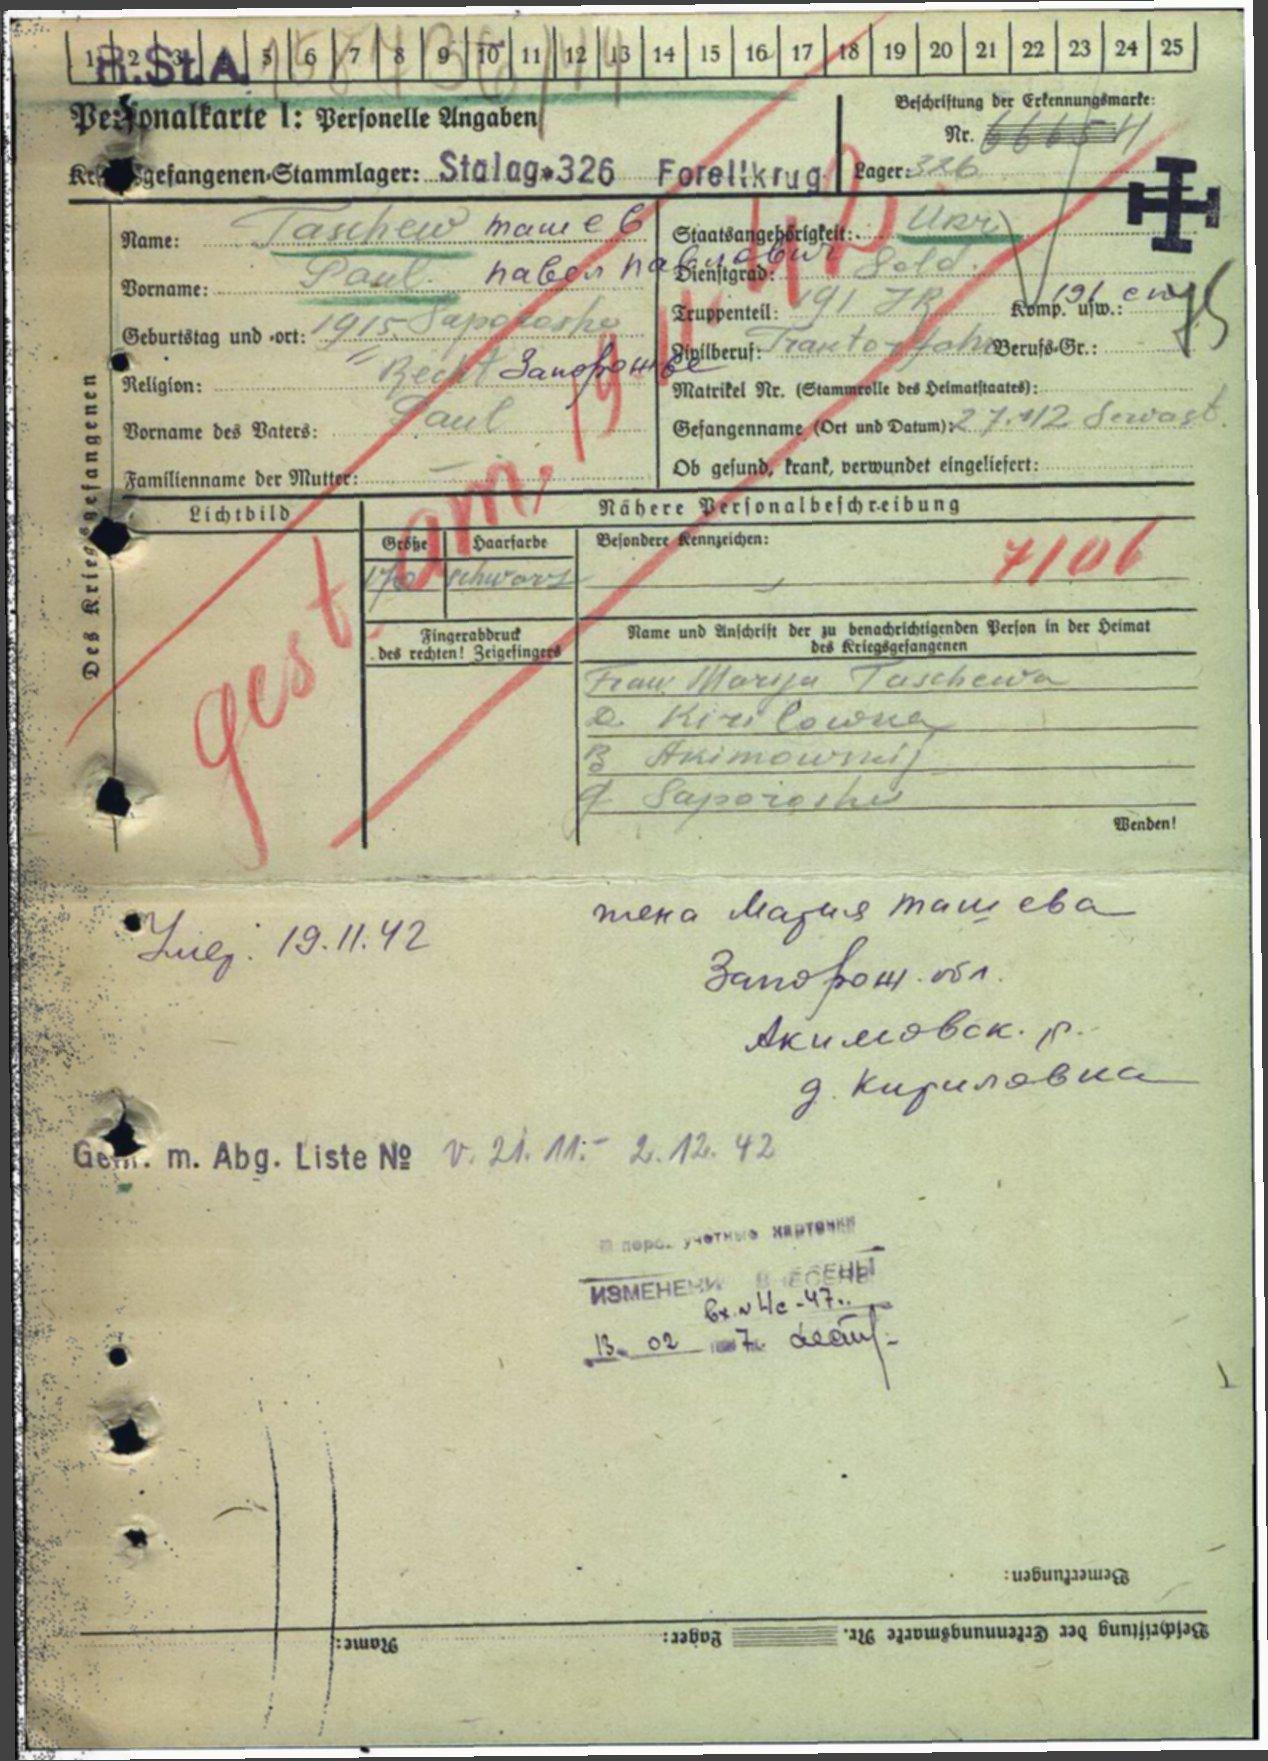 1 2 3 5 6 7 8 9 10 11 12 13 14 15 16 17 18 19 20 21 22 23 24 25
R.St.A.
Personalkarte I: Personelle Angaben
Beschriftung der Erkennungsmarke:
Nr. 66654
gefangenen-Stammlager: Stalag 326 Forellkrug
Lager: 326
Des Kriegsgefangenen
Name: Taschew ташев
Vorname: Paul павел павлович
Geburtstag und -ort: 1915 Saporoshe
Запорожье
Religion:
Vorname des Vaters: Paul
Familienname der Mutter: —
Staatsangehörigkeit: Ukr
Dienstgrad: Sold.
Truppenteil: 191 IR Komp. usw.: 191
Zivilberuf: Berufs-Gr.:
Matrikel Nr. (Stammrolle des Heimatstaates):
Gefangenname (Ort und Datum): Sewast.
Ob gesund, krank, verwundet eingeliefert:
gest. am. 19.11.42.
Lichtbild
Nähere Personalbeschreibung
Größe Haarfarbe
170 schwarz
Besondere Kennzeichen:
7106
Fingerabdruck
des rechten! Zeigefingers
Name und Anschrift der zu benachrichtigenden Person in der Heimat
des Kriegsgefangenen
Frau Marija Taschewa
D. Kirilowka
Akimowskij
Saporoshe
Wenden!
Умер. 19.11.42
жена Мария ташева
Запорож. обл.
Акимовск. р.
д. Кириловка
m. Abg. Liste № v. 21.11.- 2.12.42
учетные карточки
ИЗМЕНЕНИ ВНЕСЕНЫ
вх.
13. 02 7
Bemerkungen:
Beschriftung der Erkennungsmarke Nr. Lager: Name: